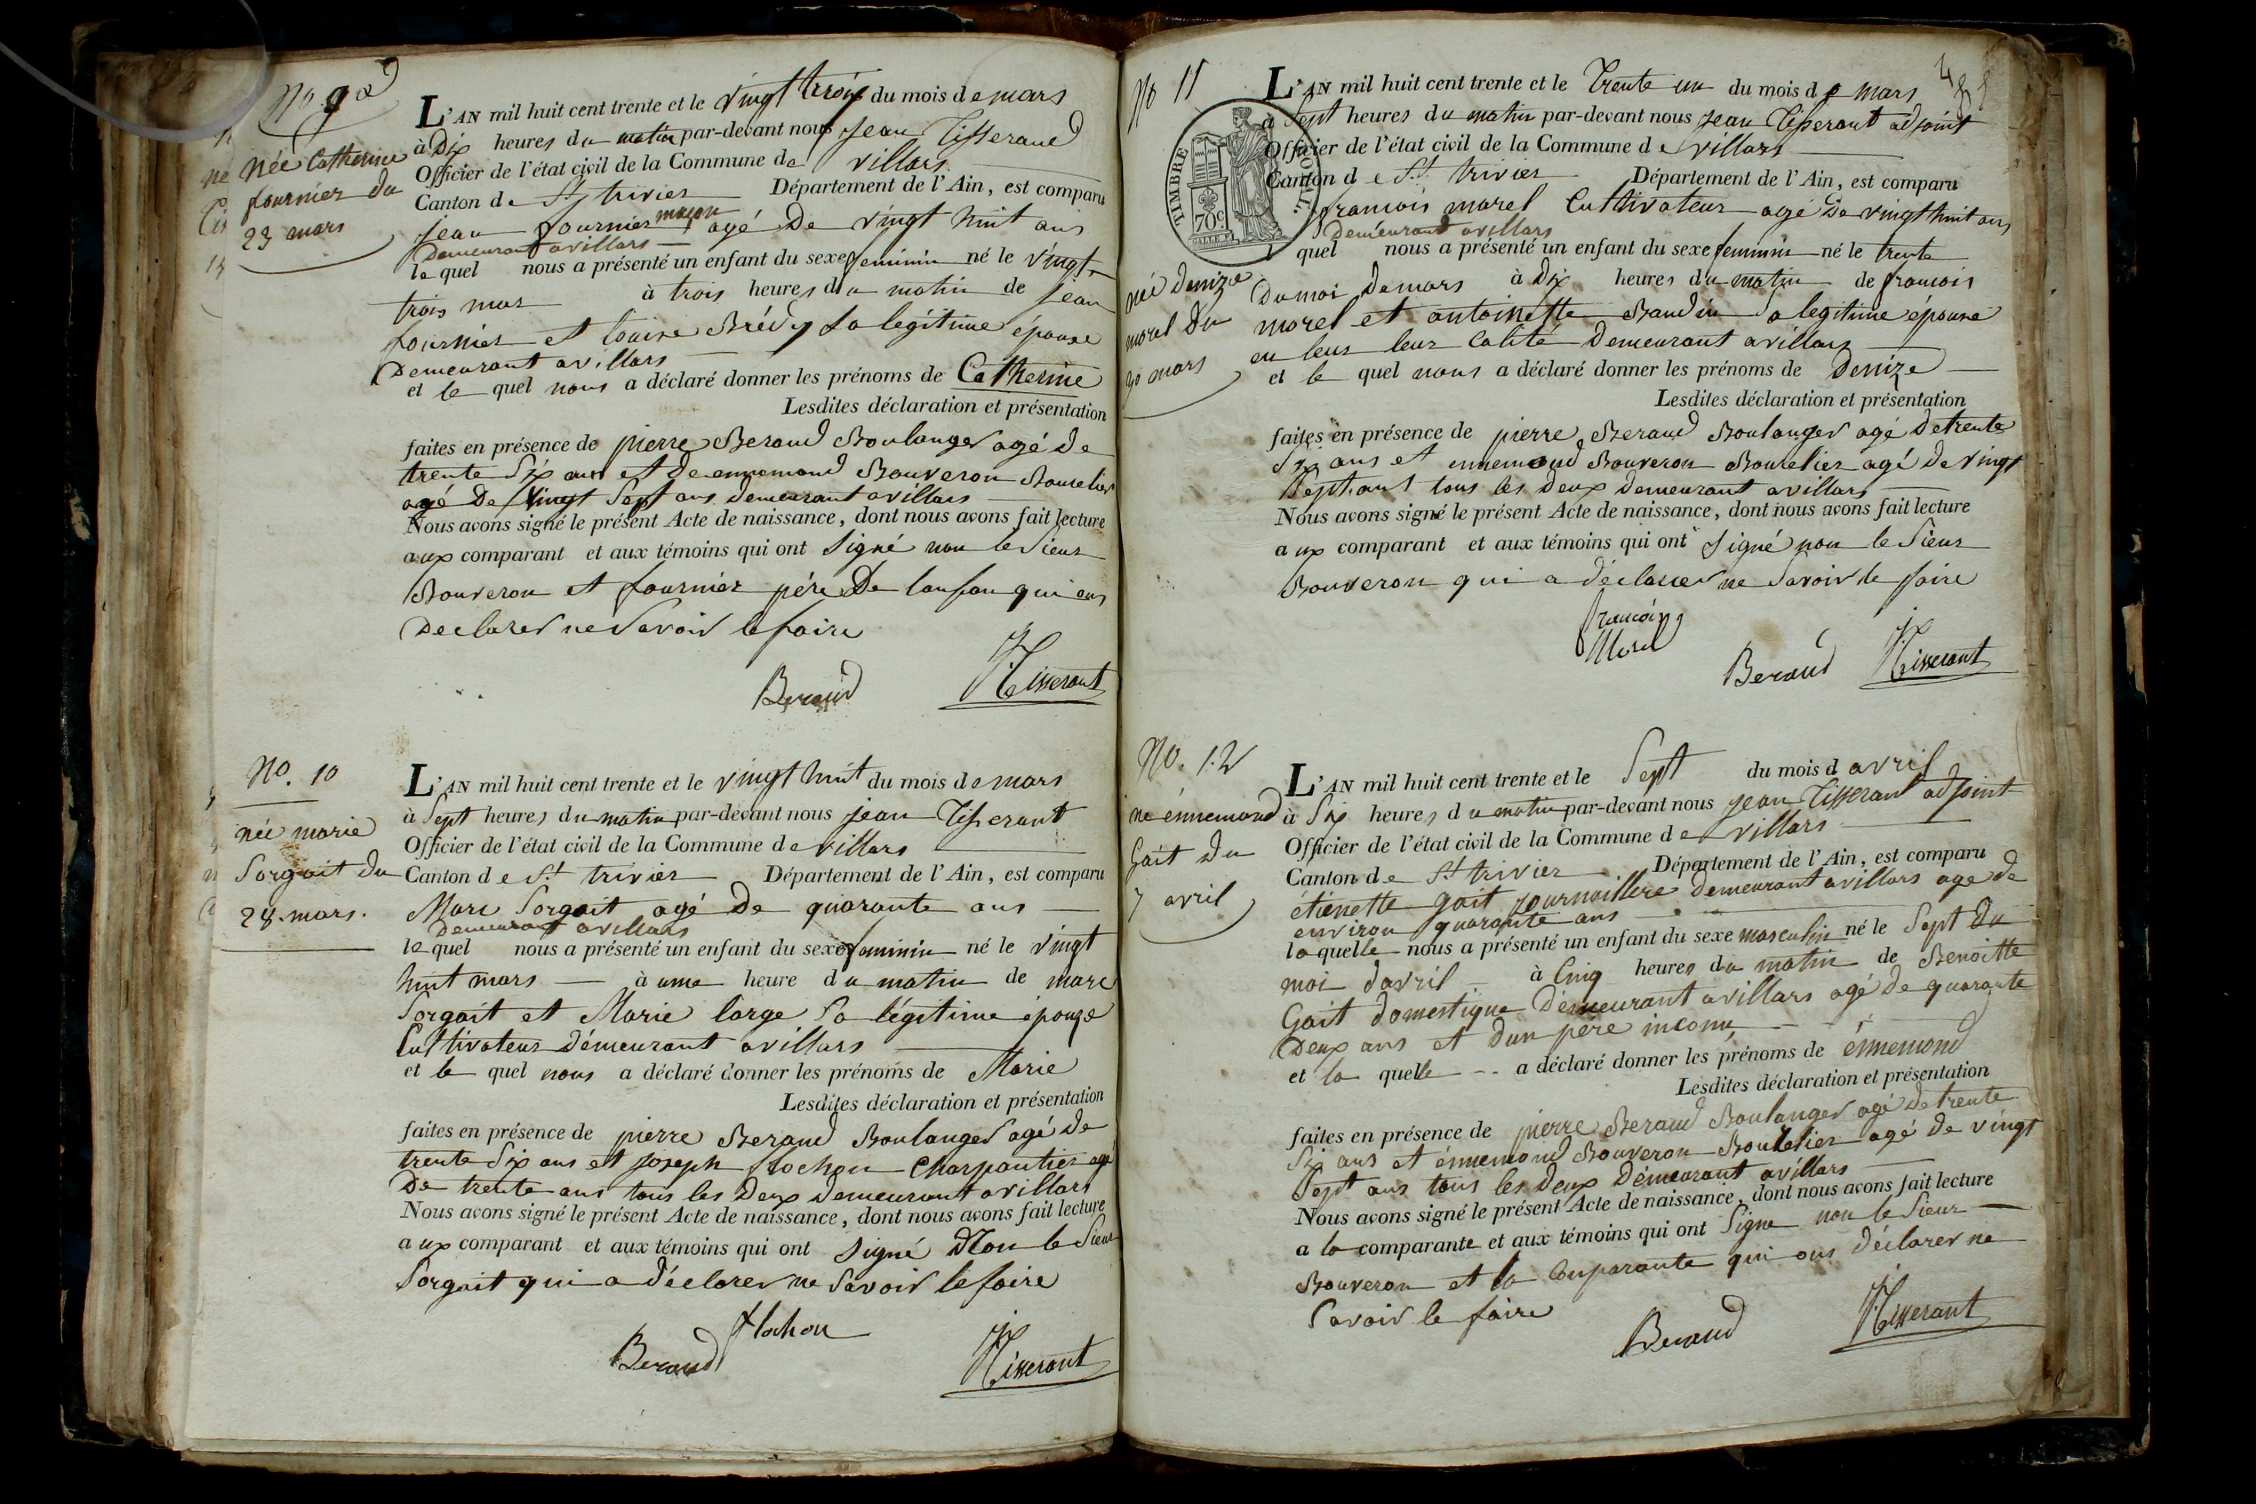 No 9
née Catherine
fournier du
23 mars
L'AN mil huit cent trente et le vingt trois du mois de mars
à Dix heures du matin par-devant nous jean Tisserand
Officier de l'état civil de la Commune de villars
Canton de St trivier Département de l'Ain, est comparu
jean fournier maçon agé De vingt huit ans
Demeurant avillars
le quel nous a présenté un enfant du sexe feminin né le vingt
trois mars à trois heures du matin de jean
fournier et louise Brévy Sa legitime épouse
Demeurant avillars
et le quel nous a déclaré donner les prénoms de Catherine
Lesdites déclaration et présentation
faites en présence de pierre Beraud Boulanger agé de
trente Six ans et de ennemond Bouveron Bourelier
agé De vingt Sept ans demeurant avillars
Nous avons signé le présent Acte de naissance, dont nous avons fait lecture
aux comparant et aux témoins qui ont Signé non le Sieur
Bouveron et fournier pére De lanfan qui ons
Declarer ne Savoir le faire
Beraud Tisserant
No. 10
née marie
Sorgait du
28 mars.
L'AN mil huit cent trente et le vingt huit du mois de mars
à Sept heures du matin par-devant nous jean Tisserant
Officier de l'état civil de la Commune de villars
Canton de St trivier Département de l'Ain, est comparu
Marc Sorgait agé De quarante ans
Demeurant avillars
le quel nous a présenté un enfant du sexe feminin né le vingt
huit mars à une heure du matin de marc
Sorgait et Marie large Sa légitime épouze
Cultivateur Démeurant avillars
et le quel nous a déclaré donner les prénoms de Marie
Lesdites déclaration et présentation
faites en présence de pierre Beraud Boulanger agé De
trente Six ans et joseph flochon Charpantier agé
De trente ans tous les Deux Demeurant avillars
Nous avons signé le présent Acte de naissance, dont nous avons fait lecture
aux comparant et aux témoins qui ont Signé Non le Sieur
Sorgait qui a déclarer ne Savoir le faire
flochon
Beraud Tisserant
No 11
TIMBRE ROYAL.
70c
née Denize
morel Du
30 mars
L'AN mil huit cent trente et le Trente un du mois de mars
à Sept heures du matin par-devant nous jean Tisserant adjoint
Officier de l'état civil de la Commune de villars
Canton de St trivier Département de l'Ain, est comparu
francois morel Cultivateur agé De vingt huit ans
Demeurant avillars
quel nous a présenté un enfant du sexe feminin né le trente
Du moi De mars à Dix heures du matin de francois
morel et antoinette Baudin Sa legitime épouse
en leur leur Calité Demeurant avillars
et le quel nous a déclaré donner les prénoms de Denize
Lesdites déclaration et présentation
faites en présence de pierre Beraud Boulanger agé De trente
Six ans et ennemond Bouveron Bourelier agé de vingt
Sept ans tous les Deux Demeurant avillars
Nous avons signé le présent Acte de naissance, dont nous avons fait lecture
aux comparant et aux témoins qui ont Signé non le Sieur
Bouveron qui a déclarer ne Savoir le faire
francois
Morel
Beraud Tisserant
No. 12
né énnemond
Gait Du
7 avril
L'AN mil huit cent trente et le Sept du mois d avril
à Six heures du matin par-devant nous jean Tisserant adjoint
Officier de l'état civil de la Commune de villars
Canton de St trivier Département de l'Ain, est comparu
étienette gait journaillere demeurant avillars age de
environ quarante ans
la quelle nous a présenté un enfant du sexe masculin né le Sept Du
moi davril à Cinq heures du matin de Benoitte
Gait domestique Démeurant avillars agé de quarante
Deux ans et dun pere inconu
et la quelle a déclaré donner les prénoms de énnemond
Lesdites déclaration et présentation
faites en présence de pierre Beraud Boulanger agé De trente
Six ans et énnemond Bouveron Bourelier agé de vingt
Sept ans tous les Deux Démeurant avillars
Nous avons signé le présent Acte de naissance, dont nous avons fait lecture
a la comparante et aux témoins qui ont Signé non le Sieur
Bouveron et la Conparante qui ons déclarer ne
Savoir le faire
Beraud Tisserant